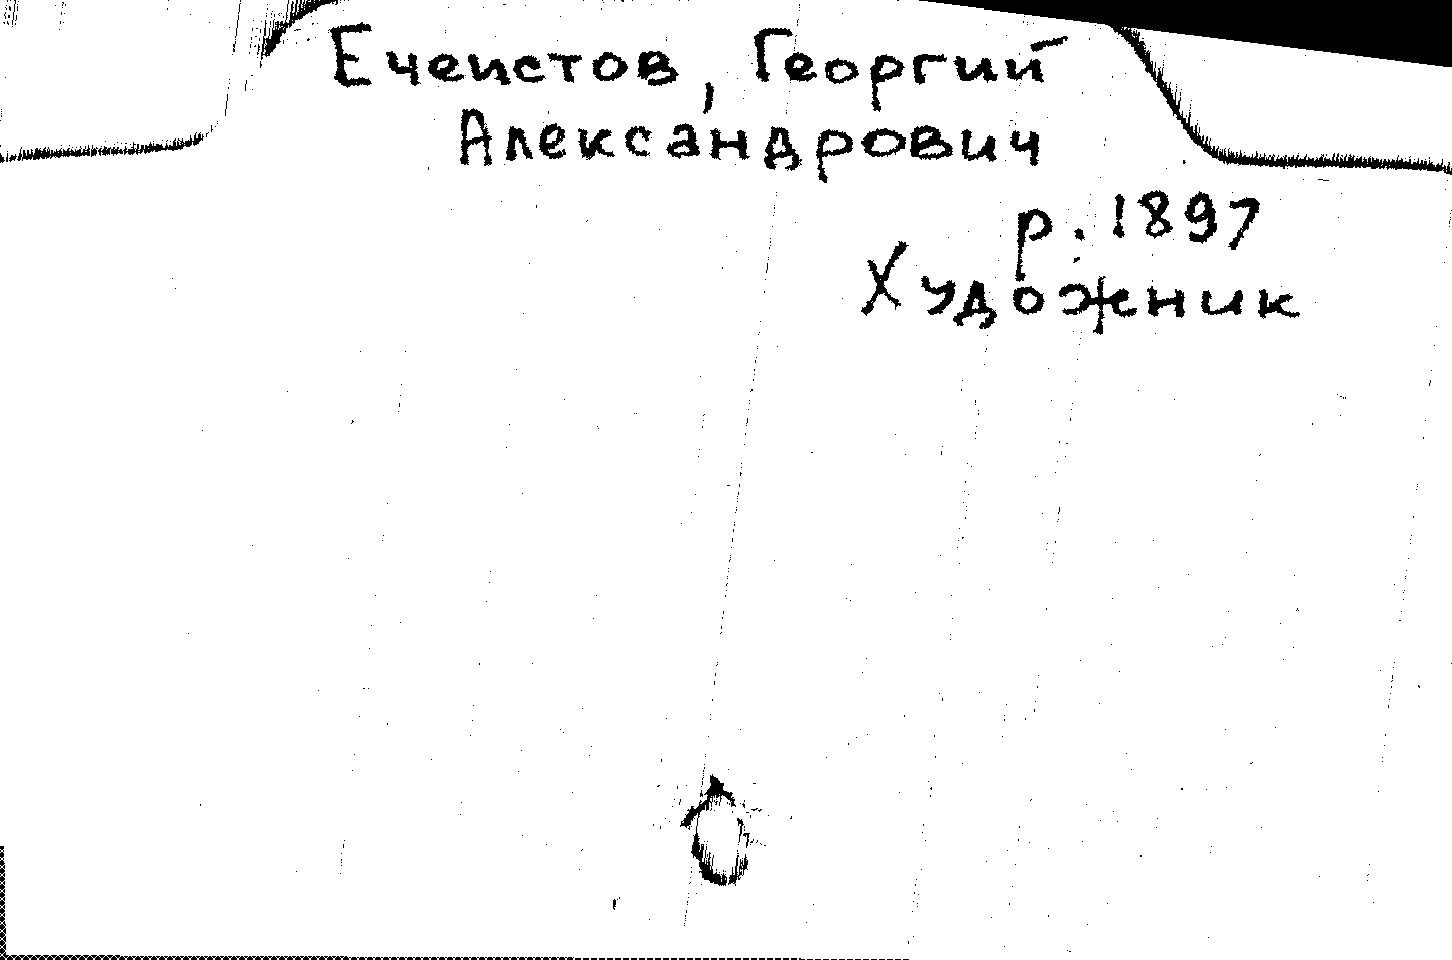 Ечеистов, Георгий
Александрович
р. 1897
Художник